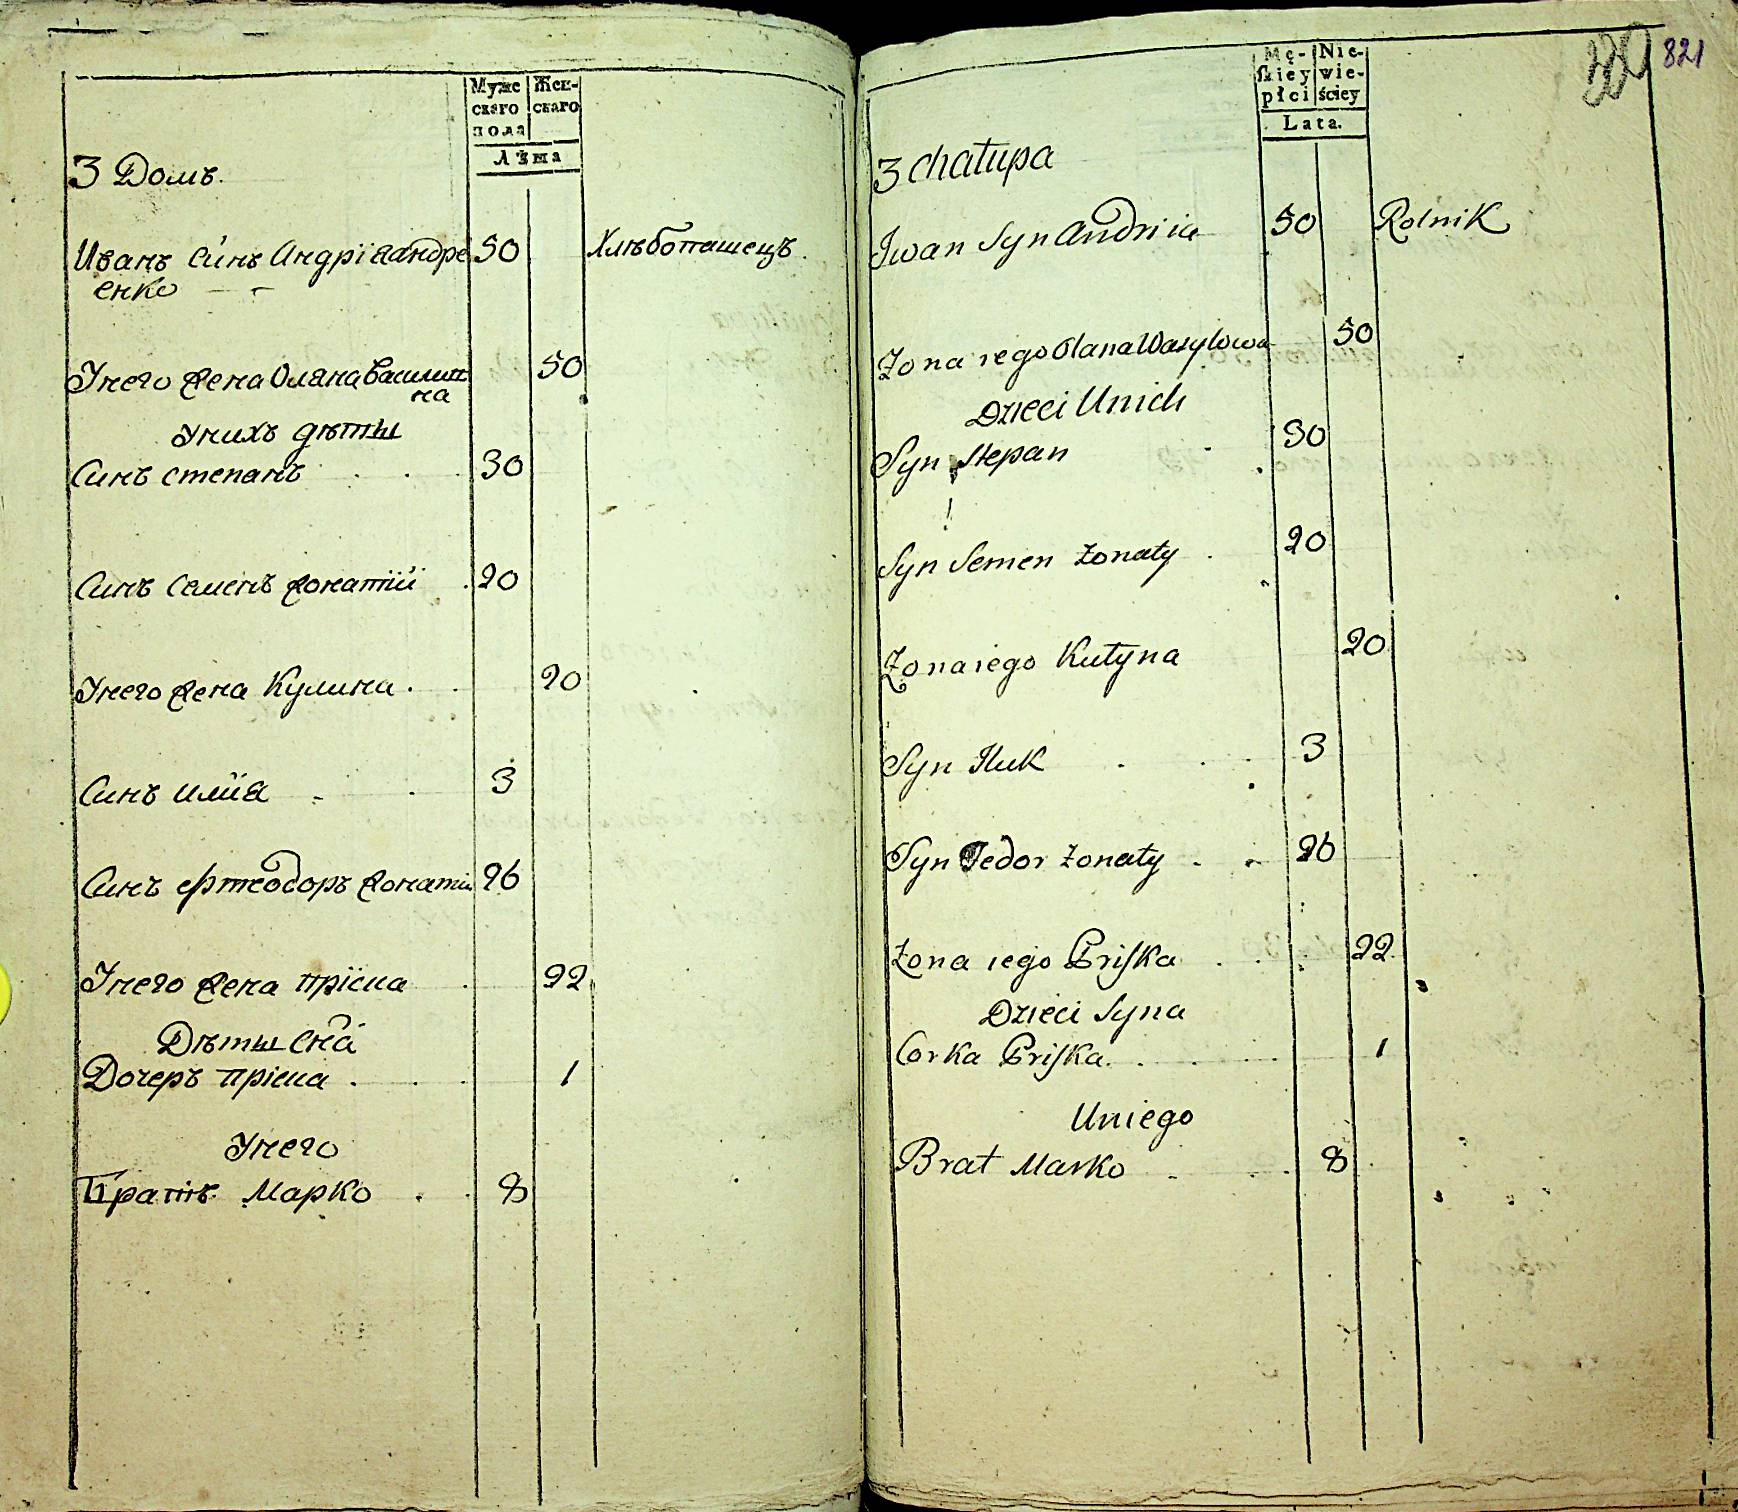 Муже Жен-
скаго скаго
пола
Лѣта
3 Домъ.
Иванъ Синъ Андріѧ андре 50 Хлѣбопашецъ.
енко
Унего жена Оляна Василит 50
на
Унихъ дѣти
Синъ степанъ 30
Синъ Семенъ жонатій 20
Унего жена Кулина 20
Синъ иліѧ 3
Синъ фтеодоръ жонатій 26
Унего жена пріска 22
Дѣти Сна
Дочеръ пріска 1
Унего
Братъ Марко 8
821
Mę- Nie-
skiey wie-
płci ściey
Lata.
3 Chałupa
Jwan Syn Andriia 50 Rolnik
Żona iego Olana Wasylowa 50
Dzieci Unich
Syn Stepan 30
Syn Semen Żonaty 20
Żona iego Kułyna 20
Syn Iluk 3
Syn Fedor Żonaty 26
Żona iego Priska 22
Dzieci Syna
Corka Priska 1
Uniego
Brat Marko 8